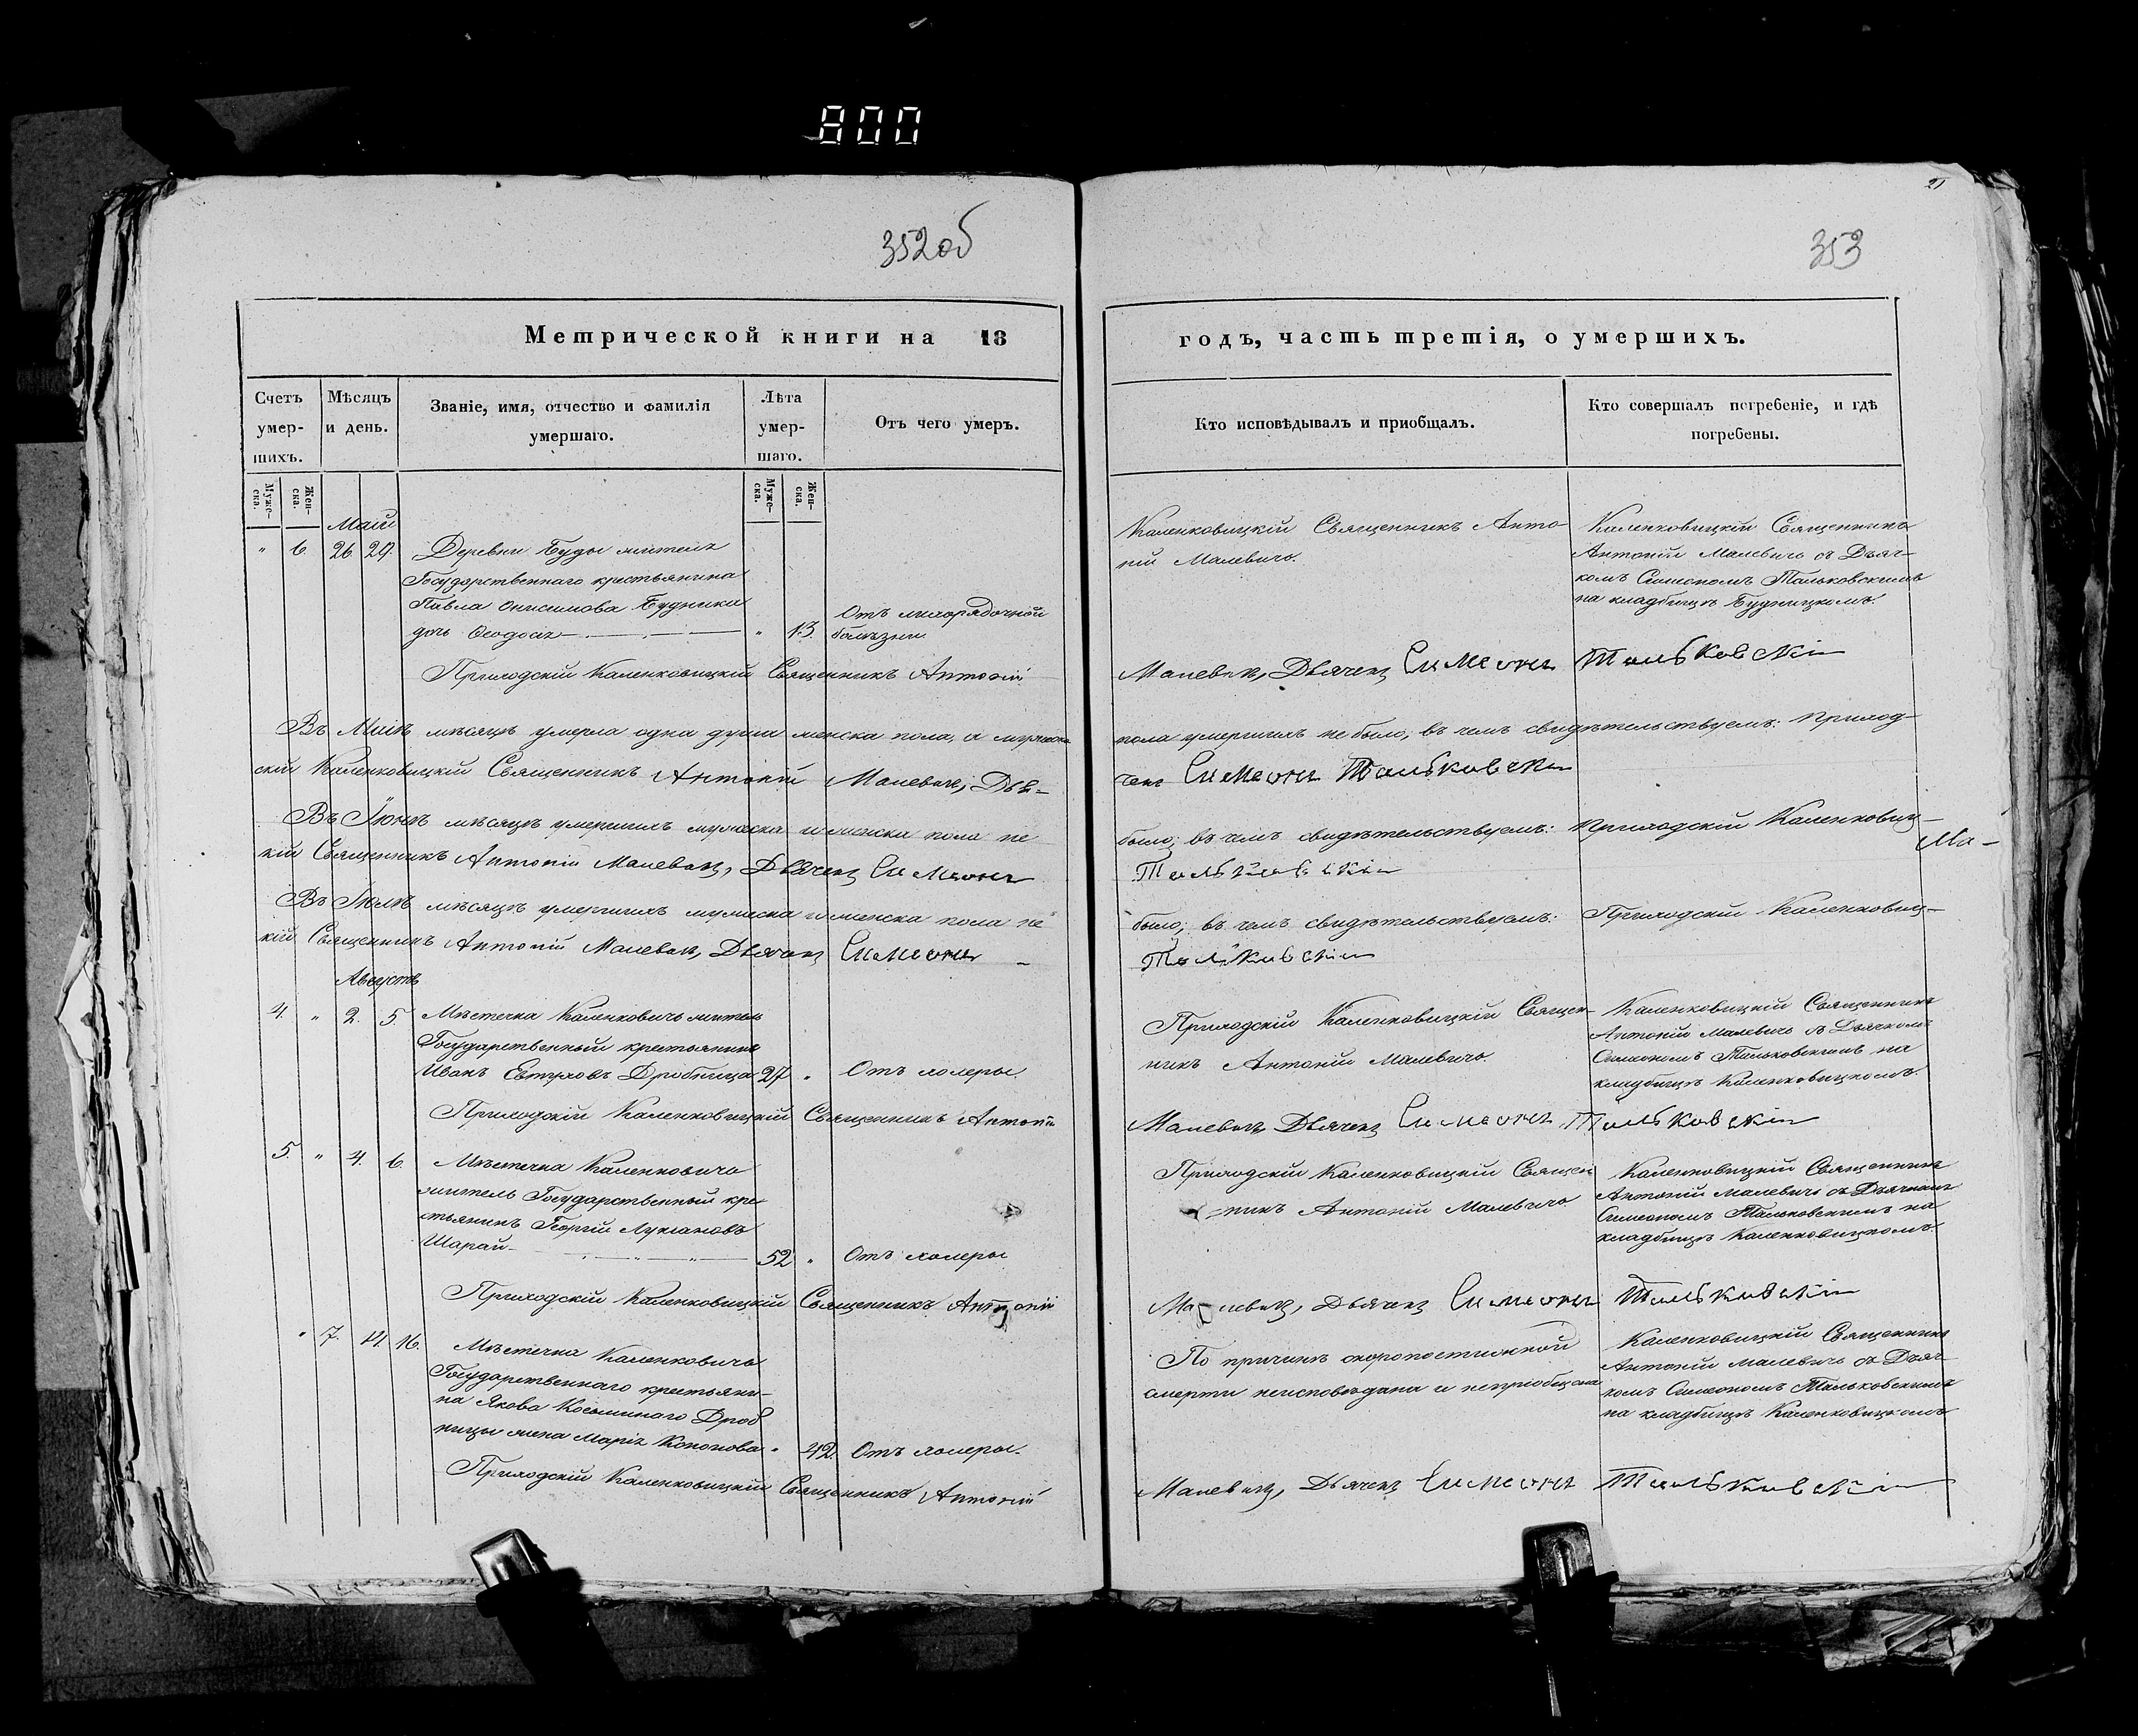 800
352об
353
Метрической книги на 18
годъ, часть третія, о умершихъ.
Счетъ умер-шихъ.
Мѣсяцъ и день.
Званіе, имя, отчество и фамилія
умершаго.
Лѣта умер-шаго.
Отъ чего умеръ.
Кто исповѣдывалъ и приобщалъ.
Кто совершалъ погребеніе, и гдѣ
погребены.
Муже-ска.
Жен-ска.
Муже-ска.
Жен-ска.
Май
" 6. 26 29. Деревни Буды житель
Государственнаго крестьянина
Павла Онисимова Будника
дочь Ѳеодосія " 13.
Отъ лихорадочной
болѣзни
Каленковицкій Священникъ Анто-
ній Малевичъ.
Каленковицкій Священникъ
Антоній Малевичъ съ Дьяч-
комъ Симеономъ Тальковскимъ
на кладбищѣ Будницкомъ.
Приходскій Каленковицкій Священникъ Антоній
Малевичъ, Дьячекъ Симеонъ Тальковскій
Въ Маіѣ мѣсяцѣ умерла одна душа женска пола, а мужеска
пола умершихъ не было; въ чемъ свидѣтельствуемъ: Приход-
скій Каленковицкій Священникъ Антоній Малевичъ, Дья-
чекъ Симеонъ Тальковскій
Въ Іюнѣ мѣсяцѣ умершихъ мужеска и женска пола не
было; въ чемъ свидѣтельствуемъ: Приходскій Каленковиц-
кій Священникъ Антоній Малевичъ, Дьячекъ Симеонъ
Тальковскій
Ма-
Въ Іюлѣ мѣсяцѣ умершихъ мужеска и женска пола не
было; въ чемъ свидѣтельствуемъ: Приходскій Каленковиц-
кій Священникъ Антоній Малевичъ, Дьячекъ Симеонъ
Тальковскій
Августъ
4. " 2. 5. Мѣстечка Каленковичъ житель
Государственный крестьянинъ
Иванъ Евтуховъ Дробница 27 " Отъ холеры.
Приходскій Каленковицкій Священ-
никъ Антоній Малевичъ.
Каленковицкій Священникъ
Антоній Малевичъ съ Дьячкомъ
Симеономъ Тальковскимъ на
кладбищѣ Каленковицкомъ.
Приходскій Каленковицкій Священникъ Антоній
Малевичъ Дьячекъ Симеонъ Тальковскій
5. " 4. 6. Мѣстечка Каленковичъ
житель Государственный кре-
стьянинъ Георгій Лукіановъ
Шарай 52 " Отъ холеры
Приходскій Каленковицкій Священ
=никъ Антоній Малевичъ
Каленковицкій Священникъ
Антоній Малевичъ съ Дьячкомъ
Симеономъ Тальковскимъ на
кладбищѣ Каленковицкомъ.
Приходскій Каленковицкій Священникъ Антоній
Малевичъ, Дьячекъ Симеонъ Тальковскій
" 7. 14. 16. Мѣстечка Каленковичъ
Государственнаго крестьяни-
на Якова Косьминаго Дроб
ницы жена Марія Кононова " 42. Отъ холеры.
По причинѣ скоропостижной
смерти неисповѣдана и непріобщена
Каленковицкій Священникъ
Антоній Малевичъ съ Дьяч-
комъ Симеономъ Тальковскимъ
на кладбищѣ Каленковицкомъ
Приходскій Каленковицкій Священникъ Антоній
Малевичъ, Дьячекъ Симеонъ Тальковскій